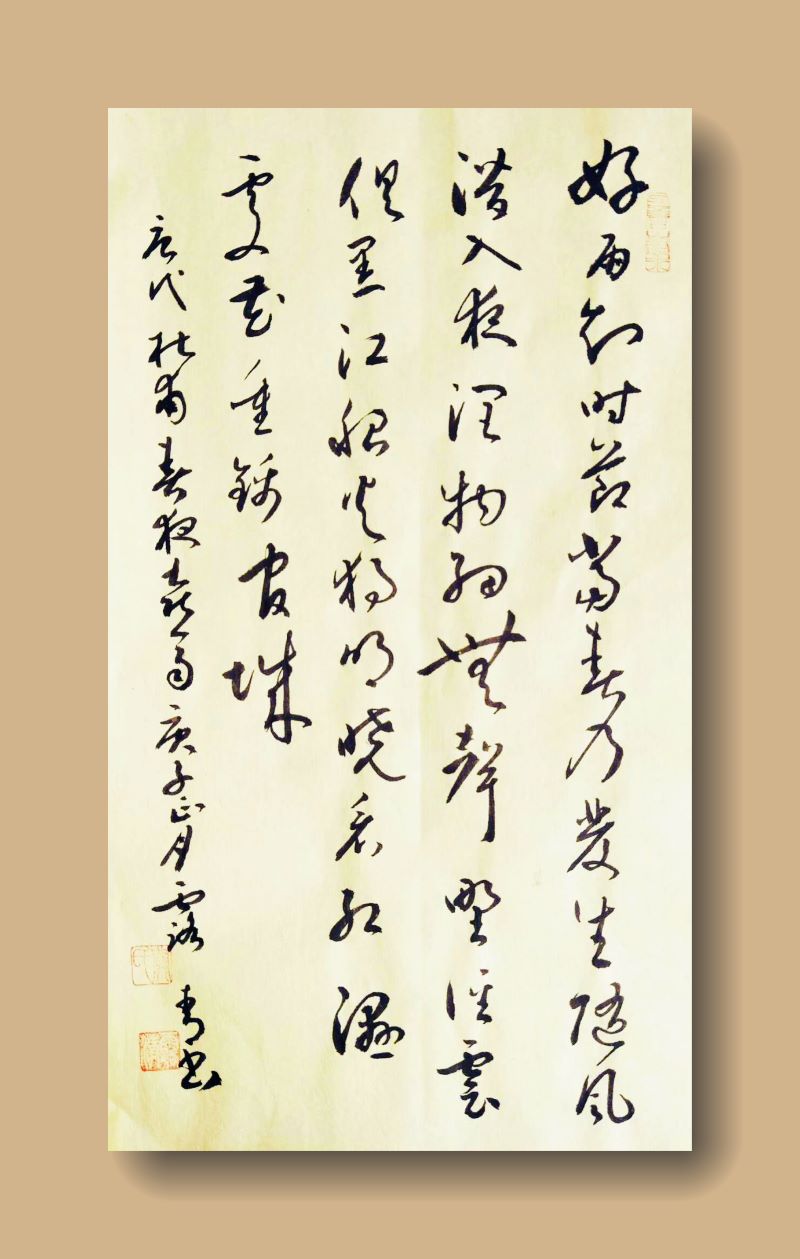 好雨知时節當春乃發生随风
潜入夜润物细無聲野径雲
俱黑江船火独明晓看红濕
處花重錦官城
唐代杜甫春夜喜雨庚子正月露青书